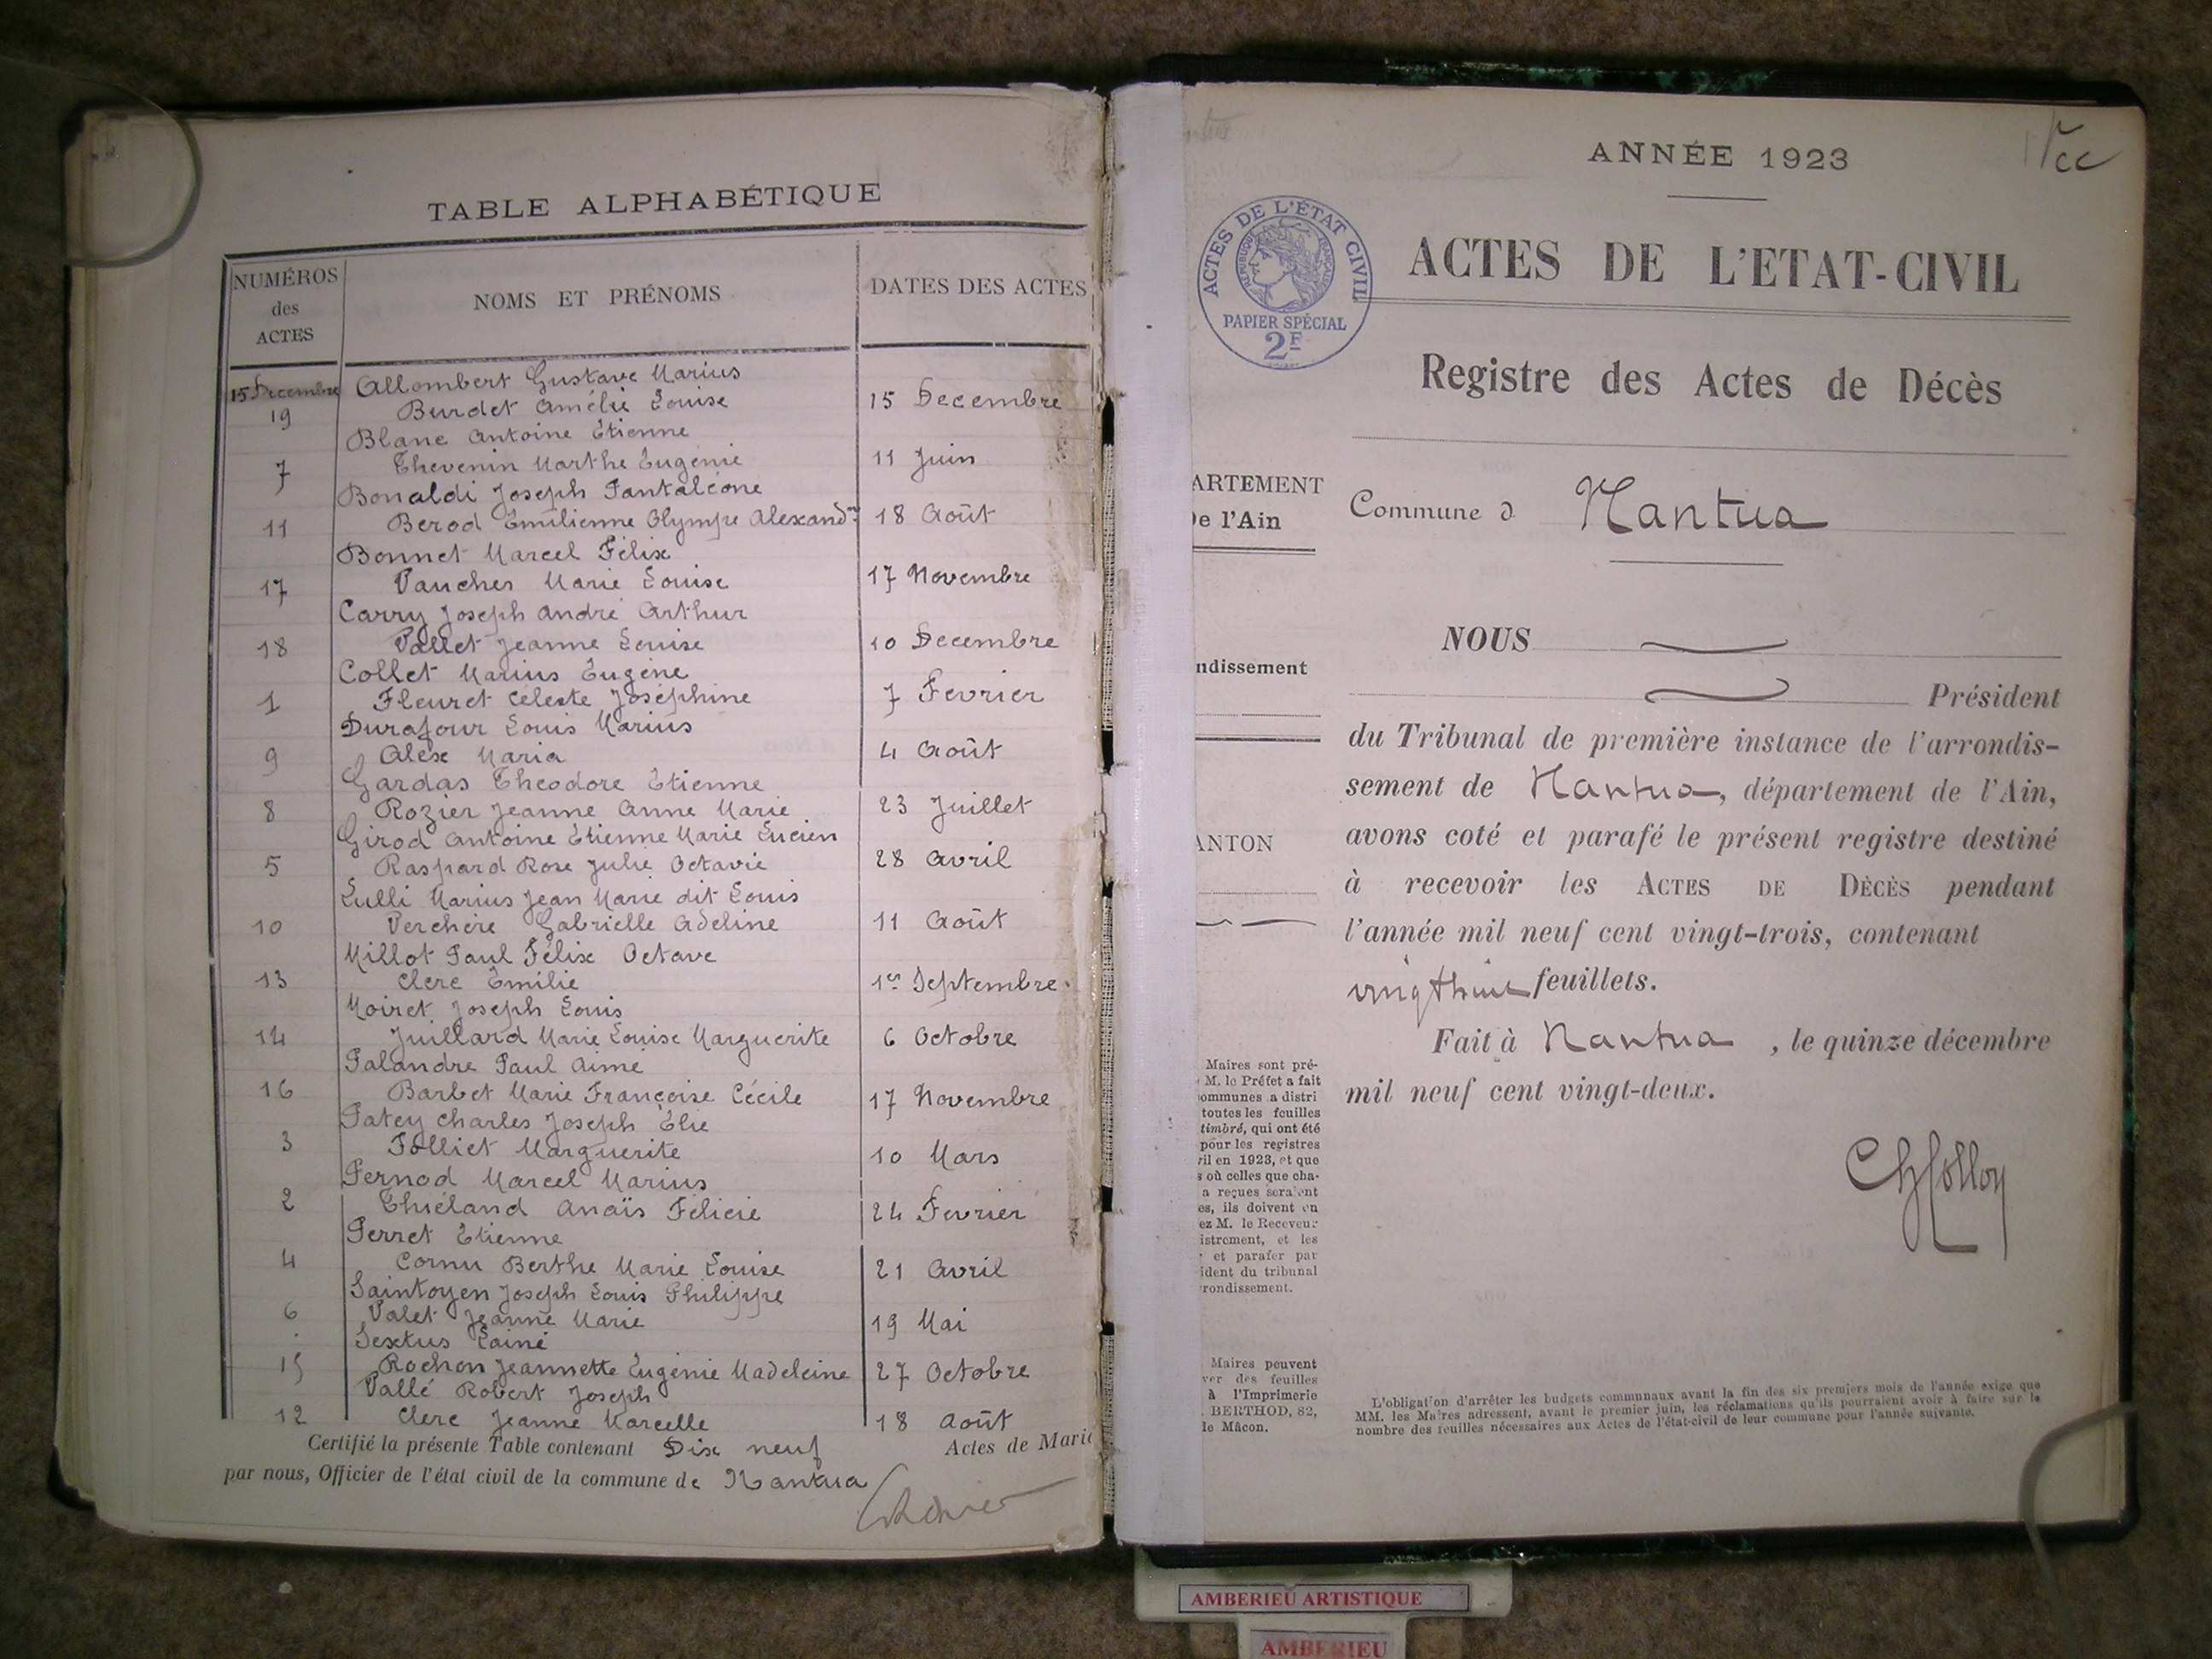 TABLE ALPHABÉTIQUE
NUMÉROS des ACTES
NOMS ET PRÉNOMS
DATES DES ACTES
15 Decembre Allombert Gustave Marius
19 Burdet Amélie Louise 15 Decembre
Blanc Antoine Étienne
7 Thevenin Marthe Eugénie 11 Juin
Bonaldi Joseph Pantaléone
11 Berod Émilienne Olympe Alexandne 18 Août
Bonnet Marcel Félix
17 Vaucher Marie Louise 17 Novembre
Carry Joseph André Arthur
18 Vallet Jeanne Louise 10 Decembre
Collet Marius Eugène
1 Fleuret Céleste Joséphine 7 Fevrier
Durafour Louis Marius
9 Alex Maria 4 Août
Gardas Theodore Étienne
8 Rozier Jeanne Anne Marie 23 Juillet
Girod Antoine Étienne Marie Lucien
5 Raspard Rose Julie Octavie 28 Avril
Lulli Marius Jean Marie dit Louis
10 Verchère Gabrielle Adeline 11 Août
Millot Paul Félix Octave
13 Clerc Émilie 1er Septembre.
Moiret Joseph Louis
14 Juillard Marie Louise Marguerite 6 Octobre
Palandre Paul Aimé
16 Barbet Marie Françoise Cécile 17 Novembre
Patey Charles Joseph Élie
3 Folliet Marguerite 10 Mars
Pernod Marcel Marius
2 Thiéland Anaïs Félicie 24 Fevrier
Perret Étienne
4 Cornu Berthe Marie Louise 21 Avril
Saintoyen Joseph Louis Philippe
6 Valet Jeanne Marie 19 Mai
Sextus Lainé
15 Rochon Jeannette Eugénie Madeleine 27 Octobre
Vallé Robert Joseph
12 Clerc Jeanne Marcelle 18 Août
Certifié la présente Table contenant Dix neuf Actes de Maria
par nous, Officier de l'état civil de la commune de Nantua
ANNÉE 1923
ACTES DE L'ÉTAT CIVIL
RÉPUBLIQUE FRANÇAISE
PAPIER SPÉCIAL
2F
ACTES DE L'ETAT-CIVIL
Registre des Actes de Décès
ARTEMENT
De l'Ain
Commune d Nantua
NOUS
ndissement
Président
du Tribunal de première instance de l'arrondis-
sement de Nantua, département de l'Ain,
ANTON
avons coté et parafé le présent registre destiné
à recevoir les ACTES DE DÉCÈS pendant
l'année mil neuf cent vingt-trois, contenant
vingt huit feuillets.
Fait à Nantua, le quinze décembre
mil neuf cent vingt-deux.
Maires sont pré-
M. le Préfet a fait
ommunes a distri
toutes les feuilles
timbré, qui ont été
pour les registres
ril en 1923, et que
s où celles que cha-
a reçues seraient
es, ils doivent en
ez M. le Receveur
istrement, et les
et parafer par
ident du tribunal
rondissement.
Maires peuvent
ver des feuilles
à l'Imprimerie
BERTHOD, 82,
de Mâcon.
L'obligation d'arrêter les budgets communaux avant la fin des six premiers mois de l'année exige que
MM. les Maires adressent, avant le premier juin, les réclamations qu'ils pourraient avoir à faire sur le
nombre des feuilles nécessaires aux Actes de l'état-civil de leur commune pour l'année suivante.
AMBERIEU ARTISTIQUE
AMBERIEU